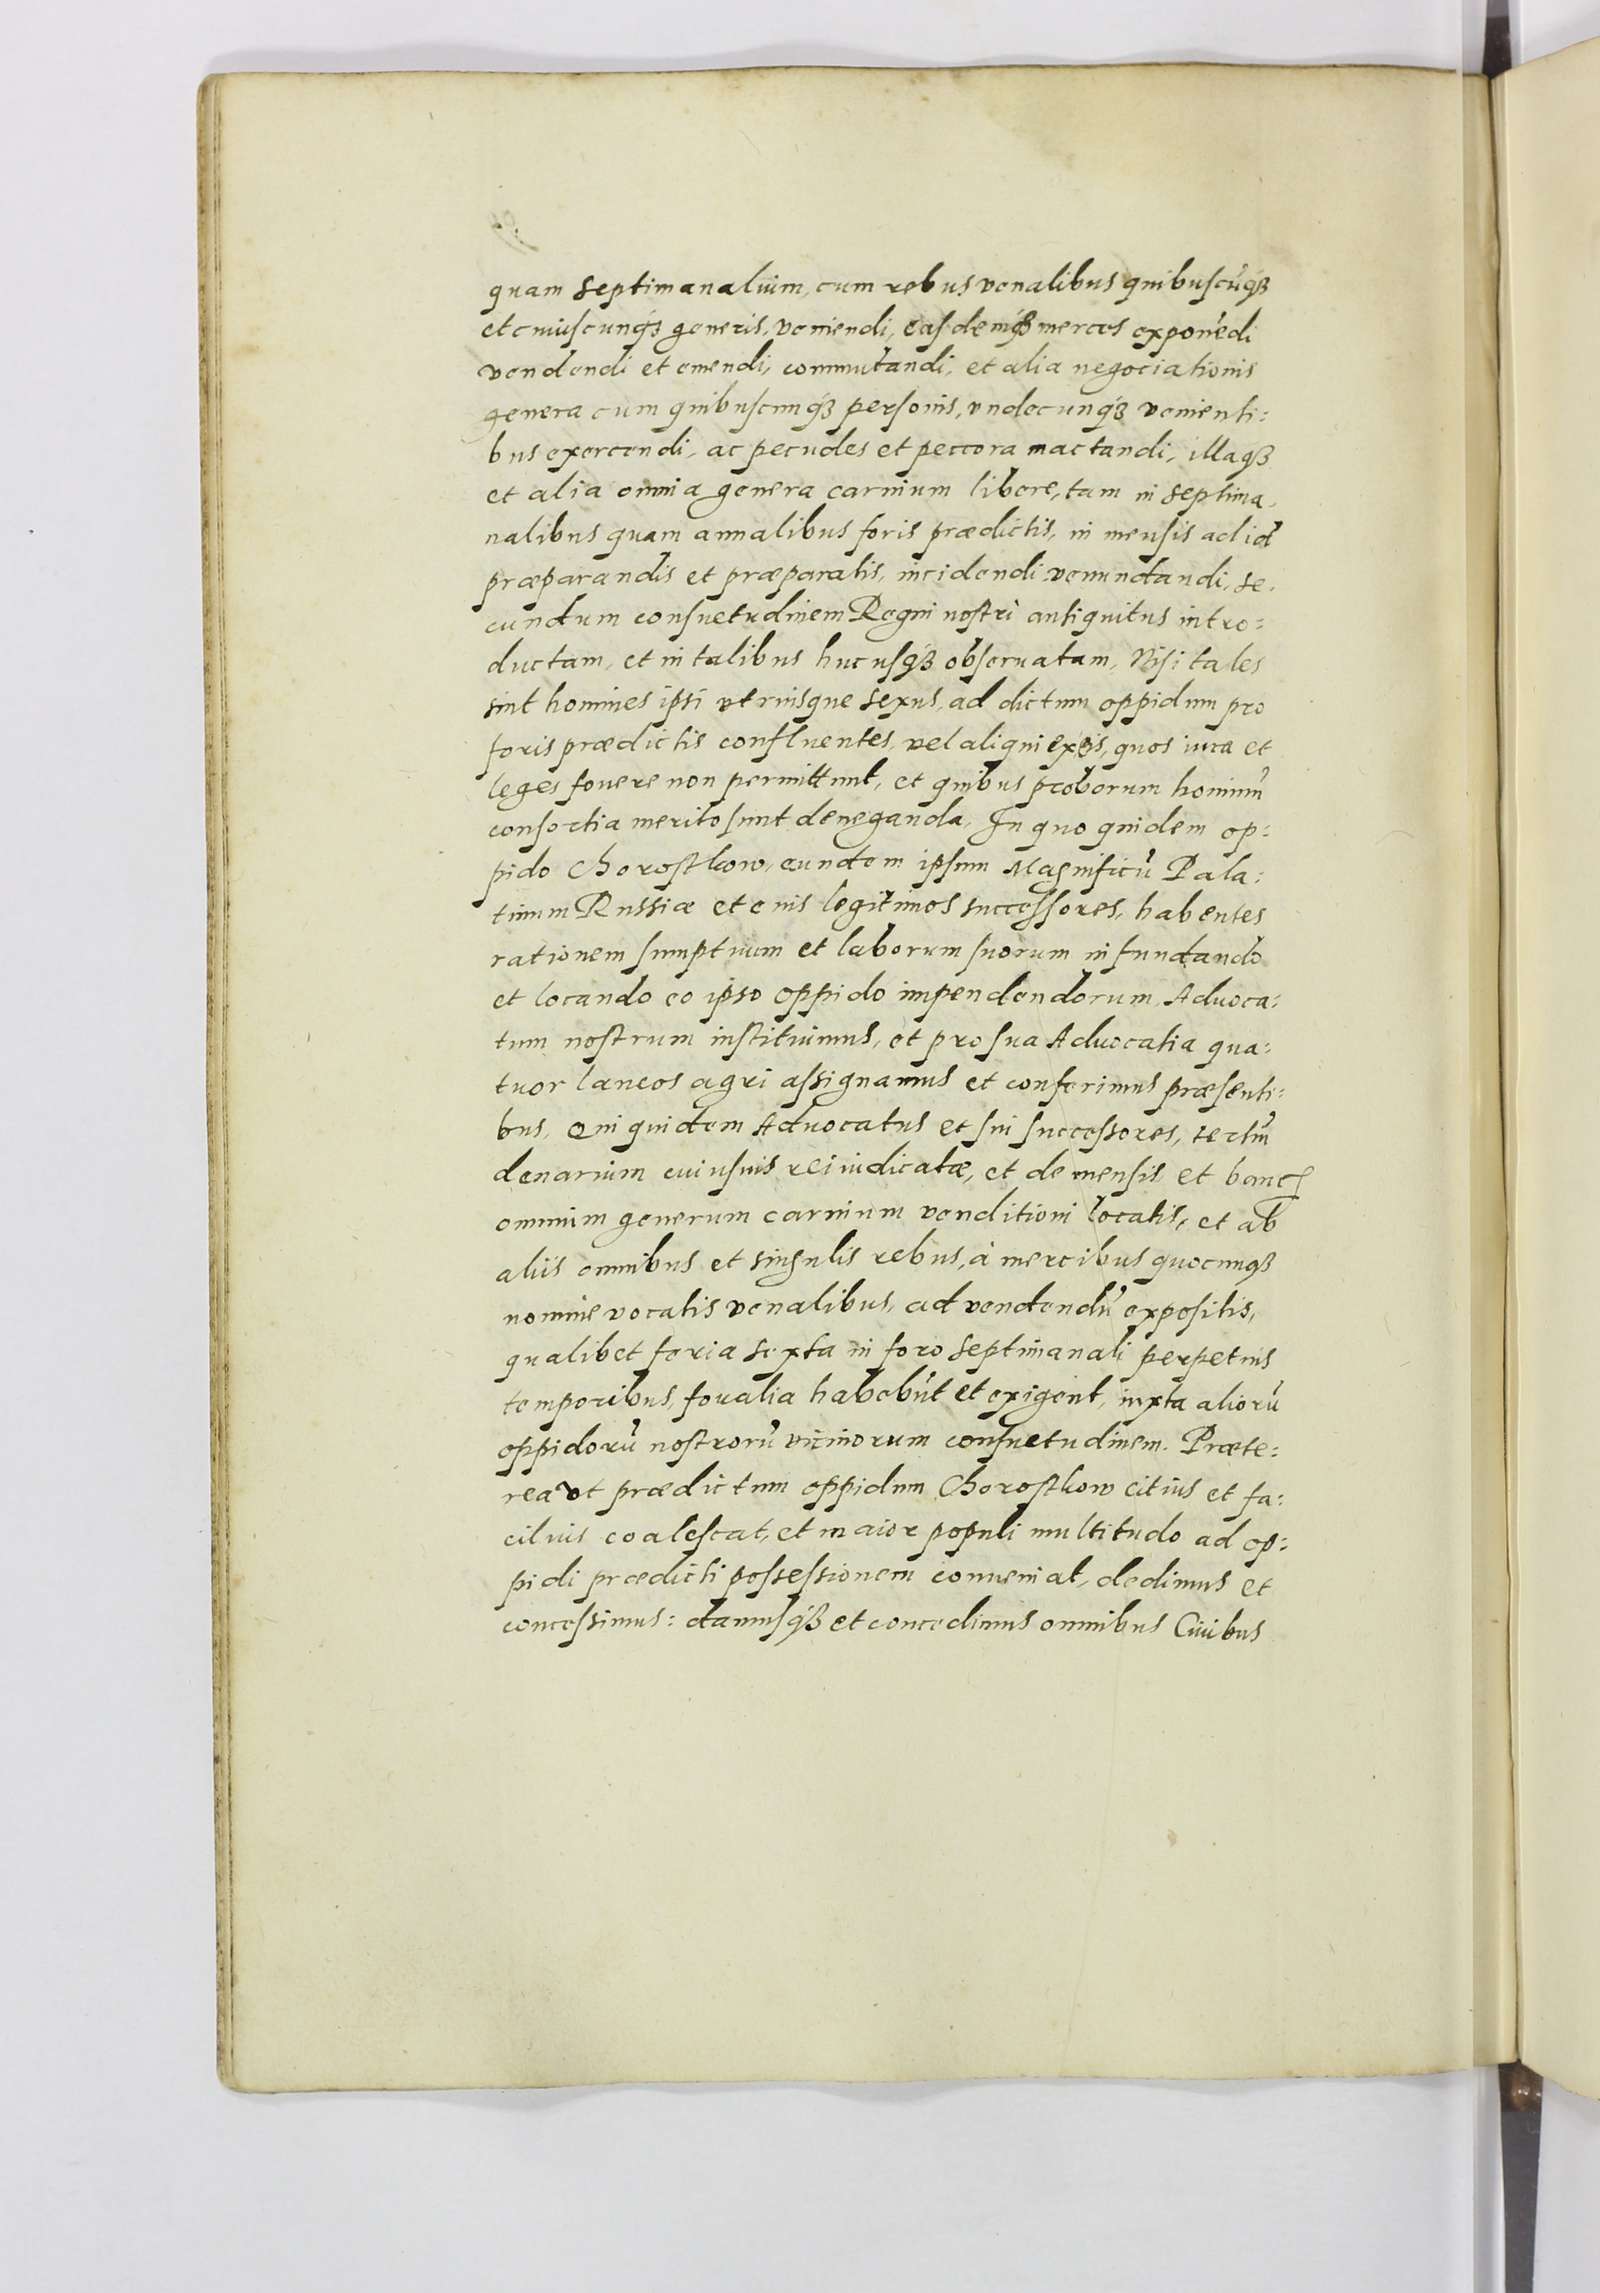 quam septimanalium, cum rebus venalibus quibuscūq́ꝫ
et cuiuscunq́ꝫ generis, veniendi, easdemq́ꝫ merces exponēdi
vendendi et emendi, commutandi, et alia negociationis
genera cum quibuscunq́ꝫ personis, vndecunq́ꝫ venienti:
bus exercendi, ac pecudes et peccora mactandi, illaqꝫ
et alia omnia genera carnium libere, tam in septima,
nalibus quam annalibus foris prædictis, in mensis ad id
præparandis et præparatis, incidendi venundandi, se,
cundum consuetudinem Regni nostri antiquitus intro:
ductam, et in talibus hucusq́ꝫ obseruatam, Nisi tales
sint homines ipsi vtriusque sexus, ad dictum oppidum pro
foris prædictis confluentes, vel aliqui ex eis, quos iura et
leges fouere non permittunt, et quibus proborum hominū
consortia merito sunt deneganda. In quo quidem op:
pido Chorostkow, eundem ipsum Magnificū Pala:
tinum Russiæ et eius legitimos successores, habentes
rationem sumptuum et laborum suorum in fundando
et locando eo ipso oppido impendendorum, Aduoca:
tum nostrum instituimus, et pro sua Aduocatia qua:
tuor laneos agri assignamus et conferimus præsenti:
bus, Qui quidem Aduocatus et sui successores, tertiū
denarium cuiusuis rei iudicatæ, et de mensis et banc
omnium generum carnium venditioni locatis, et ab
aliis omnibus et singulis rebus, à mercibus quocunqꝫ
nomine vocatis venalibus, ad vendendū expositis,
qualibet feria sexta in foro septimanali perpetuis
temporibus, foralia habebūt et exigent, iuxta aliorū
oppidorū nostrorū vicinorum consuetudinem. Præte:
rea vt prædictum oppidum Chorostkow citius et fa:
cilius coalescat, et maior populi multitudo ad op:
pidi prædicti possessionem conueniat, dedimus et
concessimus: damusq́ꝫ et concedimus omnibus Ciuibus